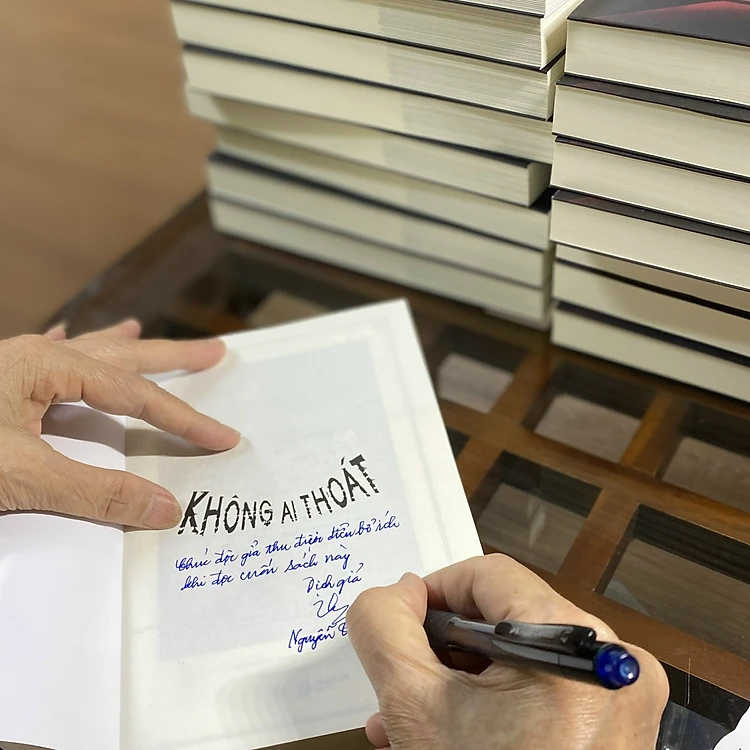 KHÔNG AI THOÁT
Chúc độc giả thu được điều bổ ích
khi đọc cuốn sách này
Dịch giả
Nguyễn